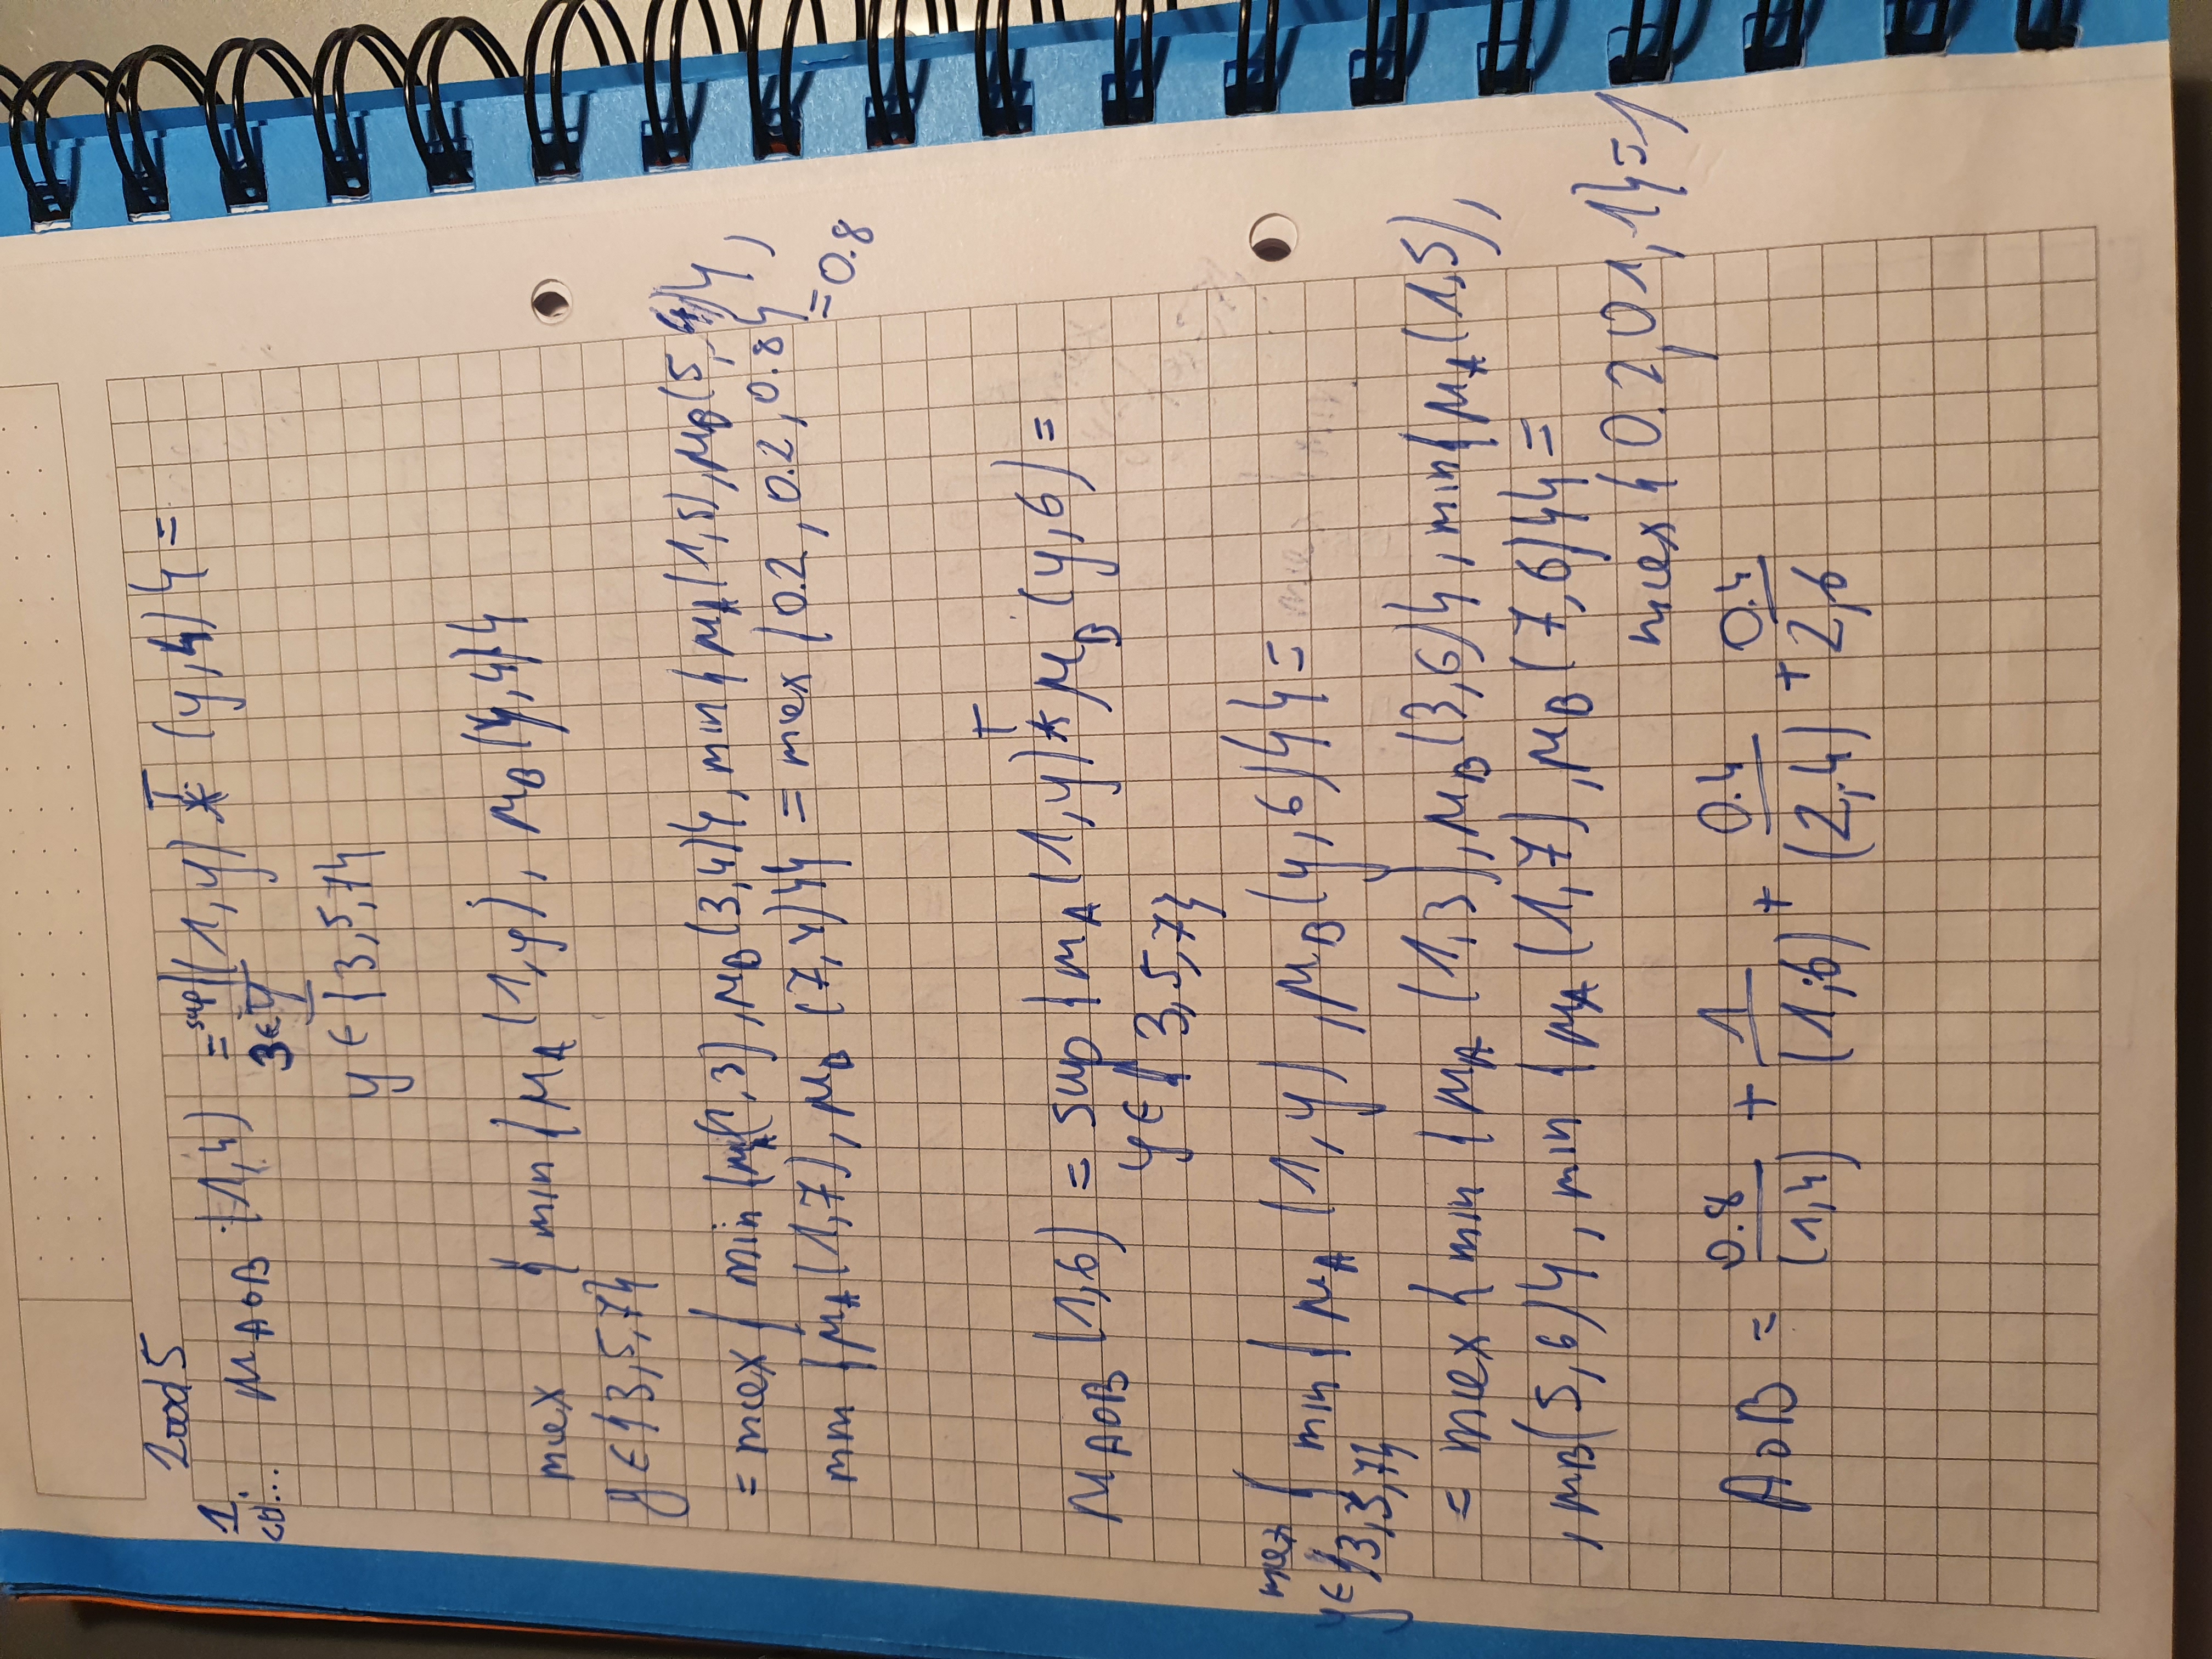 Zood 5
1. μ_{A∘B} (1,4) = sup {(1,y) T* (y,4)} =
cd... 3∈Y
y ∈ {3,5,7}
max { min {μ_A (1,y), μ_B (y,4)}
y ∈ {3,5,7}
= max { min {μ_A(1,3), μ_B (3,4)}, min {μ_A (1,5), μ_B (5,4)},
min {μ_A (1,7), μ_B (7,4)}} = max {0.2, 0.2, 0.8}
= 0.8
μ_{A∘B} (1,6) = sup {μ_A (1,y) T* μ_B (y,6) =
y ∈ {3,5,7}
max { min { μ_A (1,y), μ_B (y,6)}} =
y ∈ {3,3,7}
= max { min { μ_A (1,3), μ_B (3,6)}, min { μ_A (1,5),
, μ_B (5,6)}, min { μ_A (1,7), μ_B (7,6)}} =
max { 0.2, 01, 1} = 1
A∘B = 0.8/(1,4) + 1/(1,6) + 0.4/(2,4) + 0.4/2,6